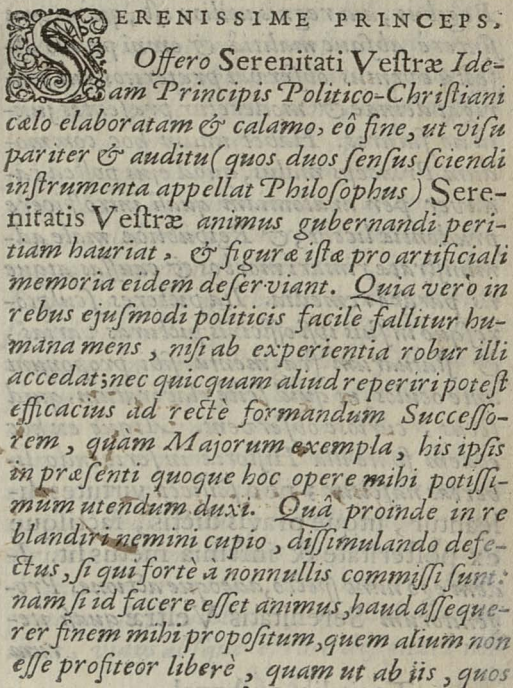 SERENISSIME PRINCEPS,
Offero Serenitati Vestræ Ide-
am Principis Politico-Christiani
cælo elaboratam & calamo, eô fine, ut visu
pariter & auditu (quos duos sensus sciendi
instrumenta appellat Philosophus) Sere-
nitatis Vestræ animus gubernandi peri-
tiam hauriat, & figuræ istæ pro artificiali
memoria eidem deserviant. Quia verò in
rebus ejusmodi politicis facilè fallitur hu-
mana mens, nisi ab experientia robur illi
accedat; nec quicquam aliud reperiri potest
efficacius ad rectè formandum Successo-
rem, quàm Majorum exempla, his ipsis
in præsenti quoque hoc opere mihi potissi-
mum utendum duxi. Quâ proinde in re
blandiri nemini cupio, dissimulando defe-
ctus, si qui fortè à nonnullis commissi sunt:
nam si id facere esset animus, haud asseque-
rer finem mihi propositum, quem alium non
esse profiteor liberè, quam ut ab iis, quos